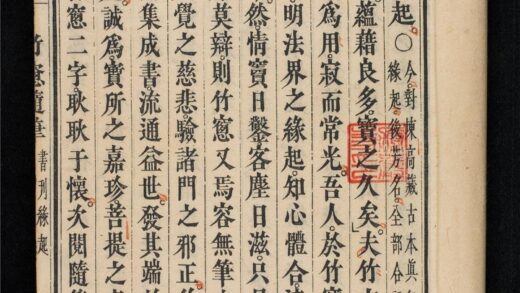 起。○今對棟高藏古本眞
緣起。後芳名。全部合
蘊藉良多。寶之久矣。夫竹
爲用。寂而常光。吾人。於竹窻
明法界之緣起。知心體合
然情竇日鑿。客塵日滋。只
莫辯。則竹窻又焉容無筆
覺之慈悲。驗諸門之邪正
集成書。流通益世。發其端
誠爲寶所之嘉珍。菩提之
窻二字。耿耿于懷。次閱隨
竹窻隨筆 書刊緣起